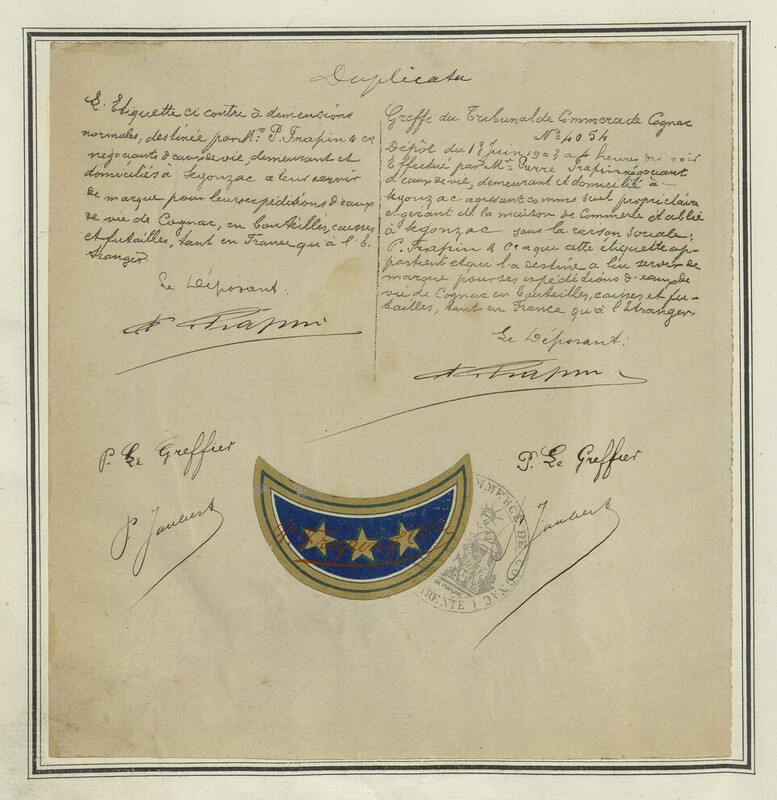 Duplicata
L'Etiquette ci contre à dimensions
normales, destinée par Mr. P. Frapin & Co
négociants d'eaux de vie, demeurant et
domiciliés à Segonzac a leur servir
de marque pour leurs expéditions d'eaux
de vie de Cognac, en bouteilles, caisses
et futailles, tant en France qu'à l'E-
tranger.
Le Déposant:
P. Frapin
Greffe du Tribunal de Commerce de Cognac
No 4054
Dépôt du 13 Juin 1903 a 4 heures du soir
Effectué par Mr. Pierre Frapin négociant
d'eaux de vie, demeurant et domicilié à
Segonzac agissant comme seul propriétaire
et gérant de la maison de Commerce établie
à Segonzac sous la raison sociale:
P. Frapin & Co a qui cette étiquette ap-
partient et qui l'a destine a lui servir de
marque pour ses expéditions d'eaux de
vie de Cognac en bouteilles, caisses et fu-
tailles, tant en France qu'à l'Etranger.
Le Déposant:
P. Frapin
P. Le Greffier
P. Le Greffier
P Jaubert
Jaubert
COMMERCE DE COGNAC